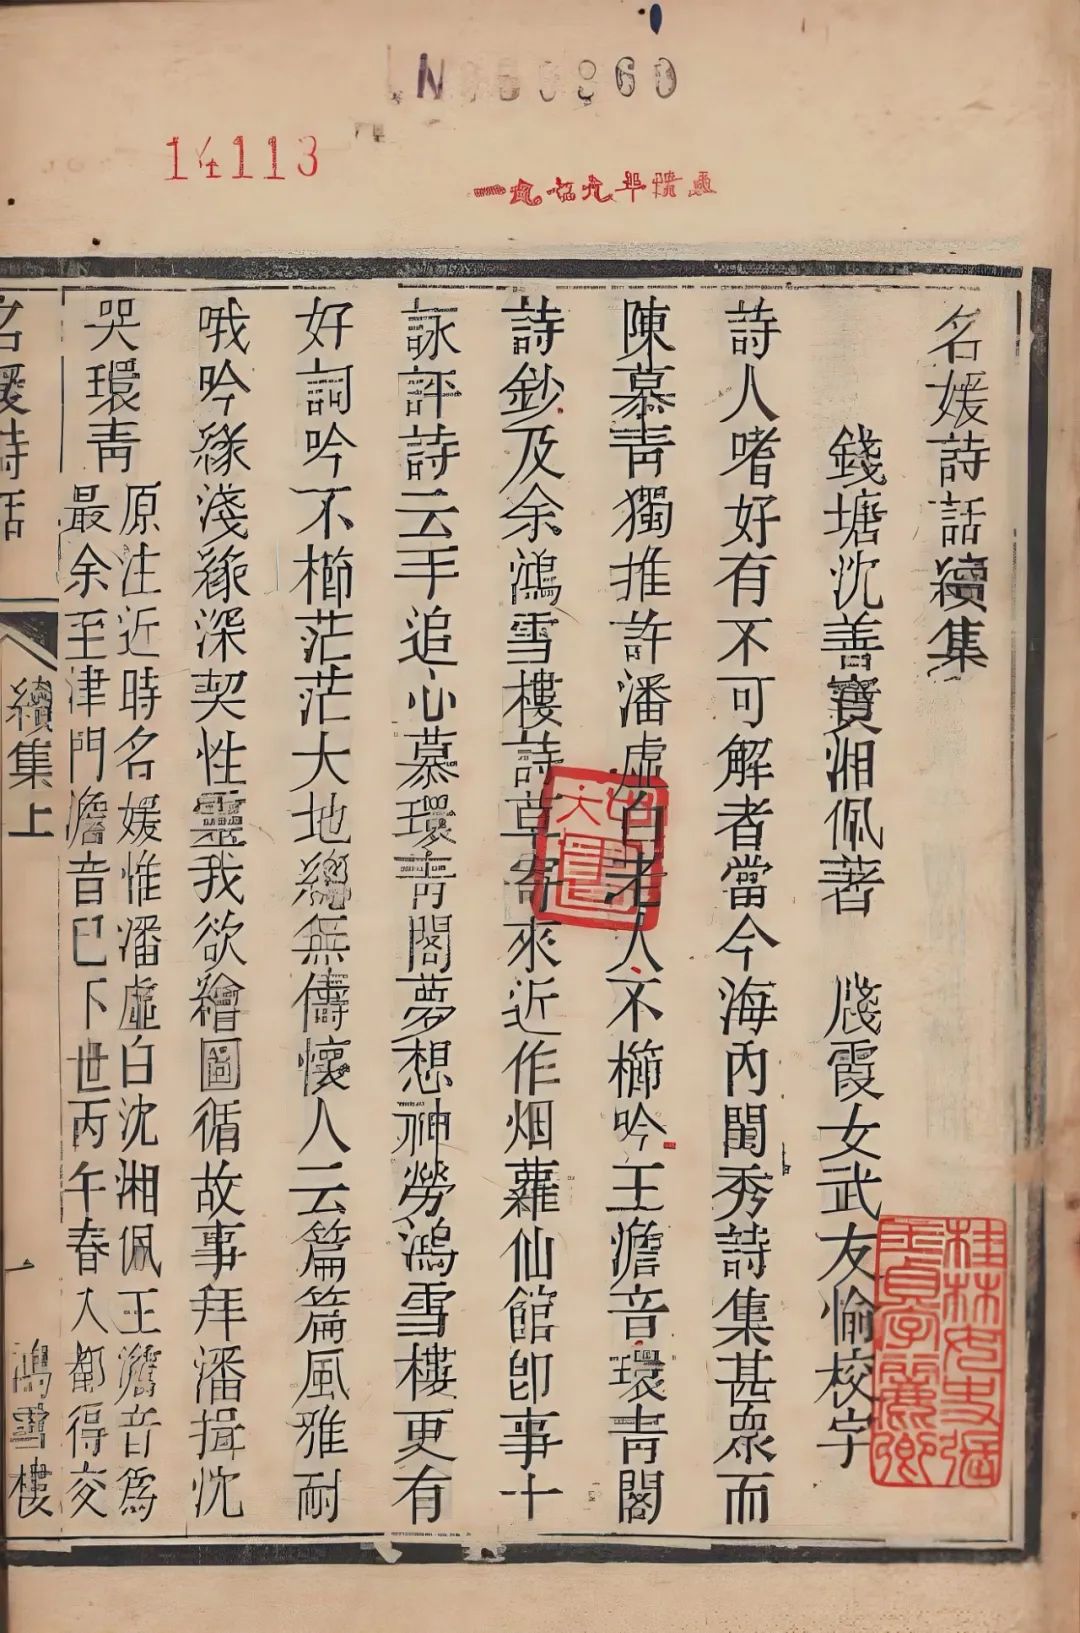 14113
名媛詩話續集
錢塘沈善寶湘佩著 牋霞女武友愉校字
詩人嗜好有不可解者當今海內閨秀詩集甚眾而
陳慕青獨推許潘虛白老人不櫛吟王澹音環青閣
詩鈔及余鴻雪樓詩草寄來近作烟蘿仙館卽事十
詠評詩云手追心慕環青閣夢想神勞鴻雪樓更有
好詞吟不櫛茫茫大地總無儔懷人云篇篇風雅耐
哦吟緣淺緣深契性靈我欲繪圖循故事拜潘揖沈
哭環青
原注近時名媛惟潘虛白沈湘佩王澹音爲
最余至津門澹音已下世丙午春入都得交
名媛詩話 續集上 一 鴻雪樓